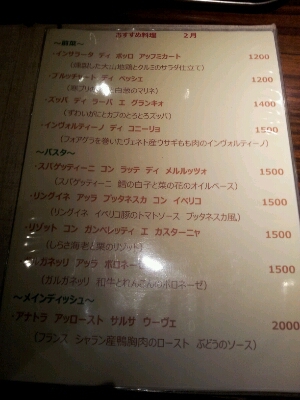 おすすめ料理 2月
～前菜～
・インサラータ ディ ポッロ アッフミカート 1200
(燻製した大山地鶏とクルミのサラダ仕立て)
・ブルッチャート ディ ペッシェ 1200
のマリネ)
・ズッパ ディ ラーパ エ グランキオ 1400
(ずわいがにとカブのとろとろズッパ)
・インヴォルティーノ ディ コニーリヨ 1500
(フォアグラを巻いたヴェネト産ウサギもも肉のインヴォルティーノ)
～パスタ～
・スパゲッティーニ コン ラッテ ディ メルルッツォ 1500
(スパゲッティーニ 鱈の白子と菜の花のオイルベース)
・リングイネ アッラ プッタネスカ コン イベリコ 1500
(リングイネ イベリコ豚のトマトソース プッタネスカ風)
・リゾット コン ガンベレッティ エ カスターニャ 1500
(しらさ海老と栗のリゾット)
・ガネッリ アッラ ボロネーゼ 1500
(ガルガネッリ 和牛とれんこんのボロネーゼ)
～メインディッシュ～
・アナトラ アッロースト サルサ ウーヴェ 2000
(フランス シャラン産鴨胸肉のロースト ぶどうのソース)